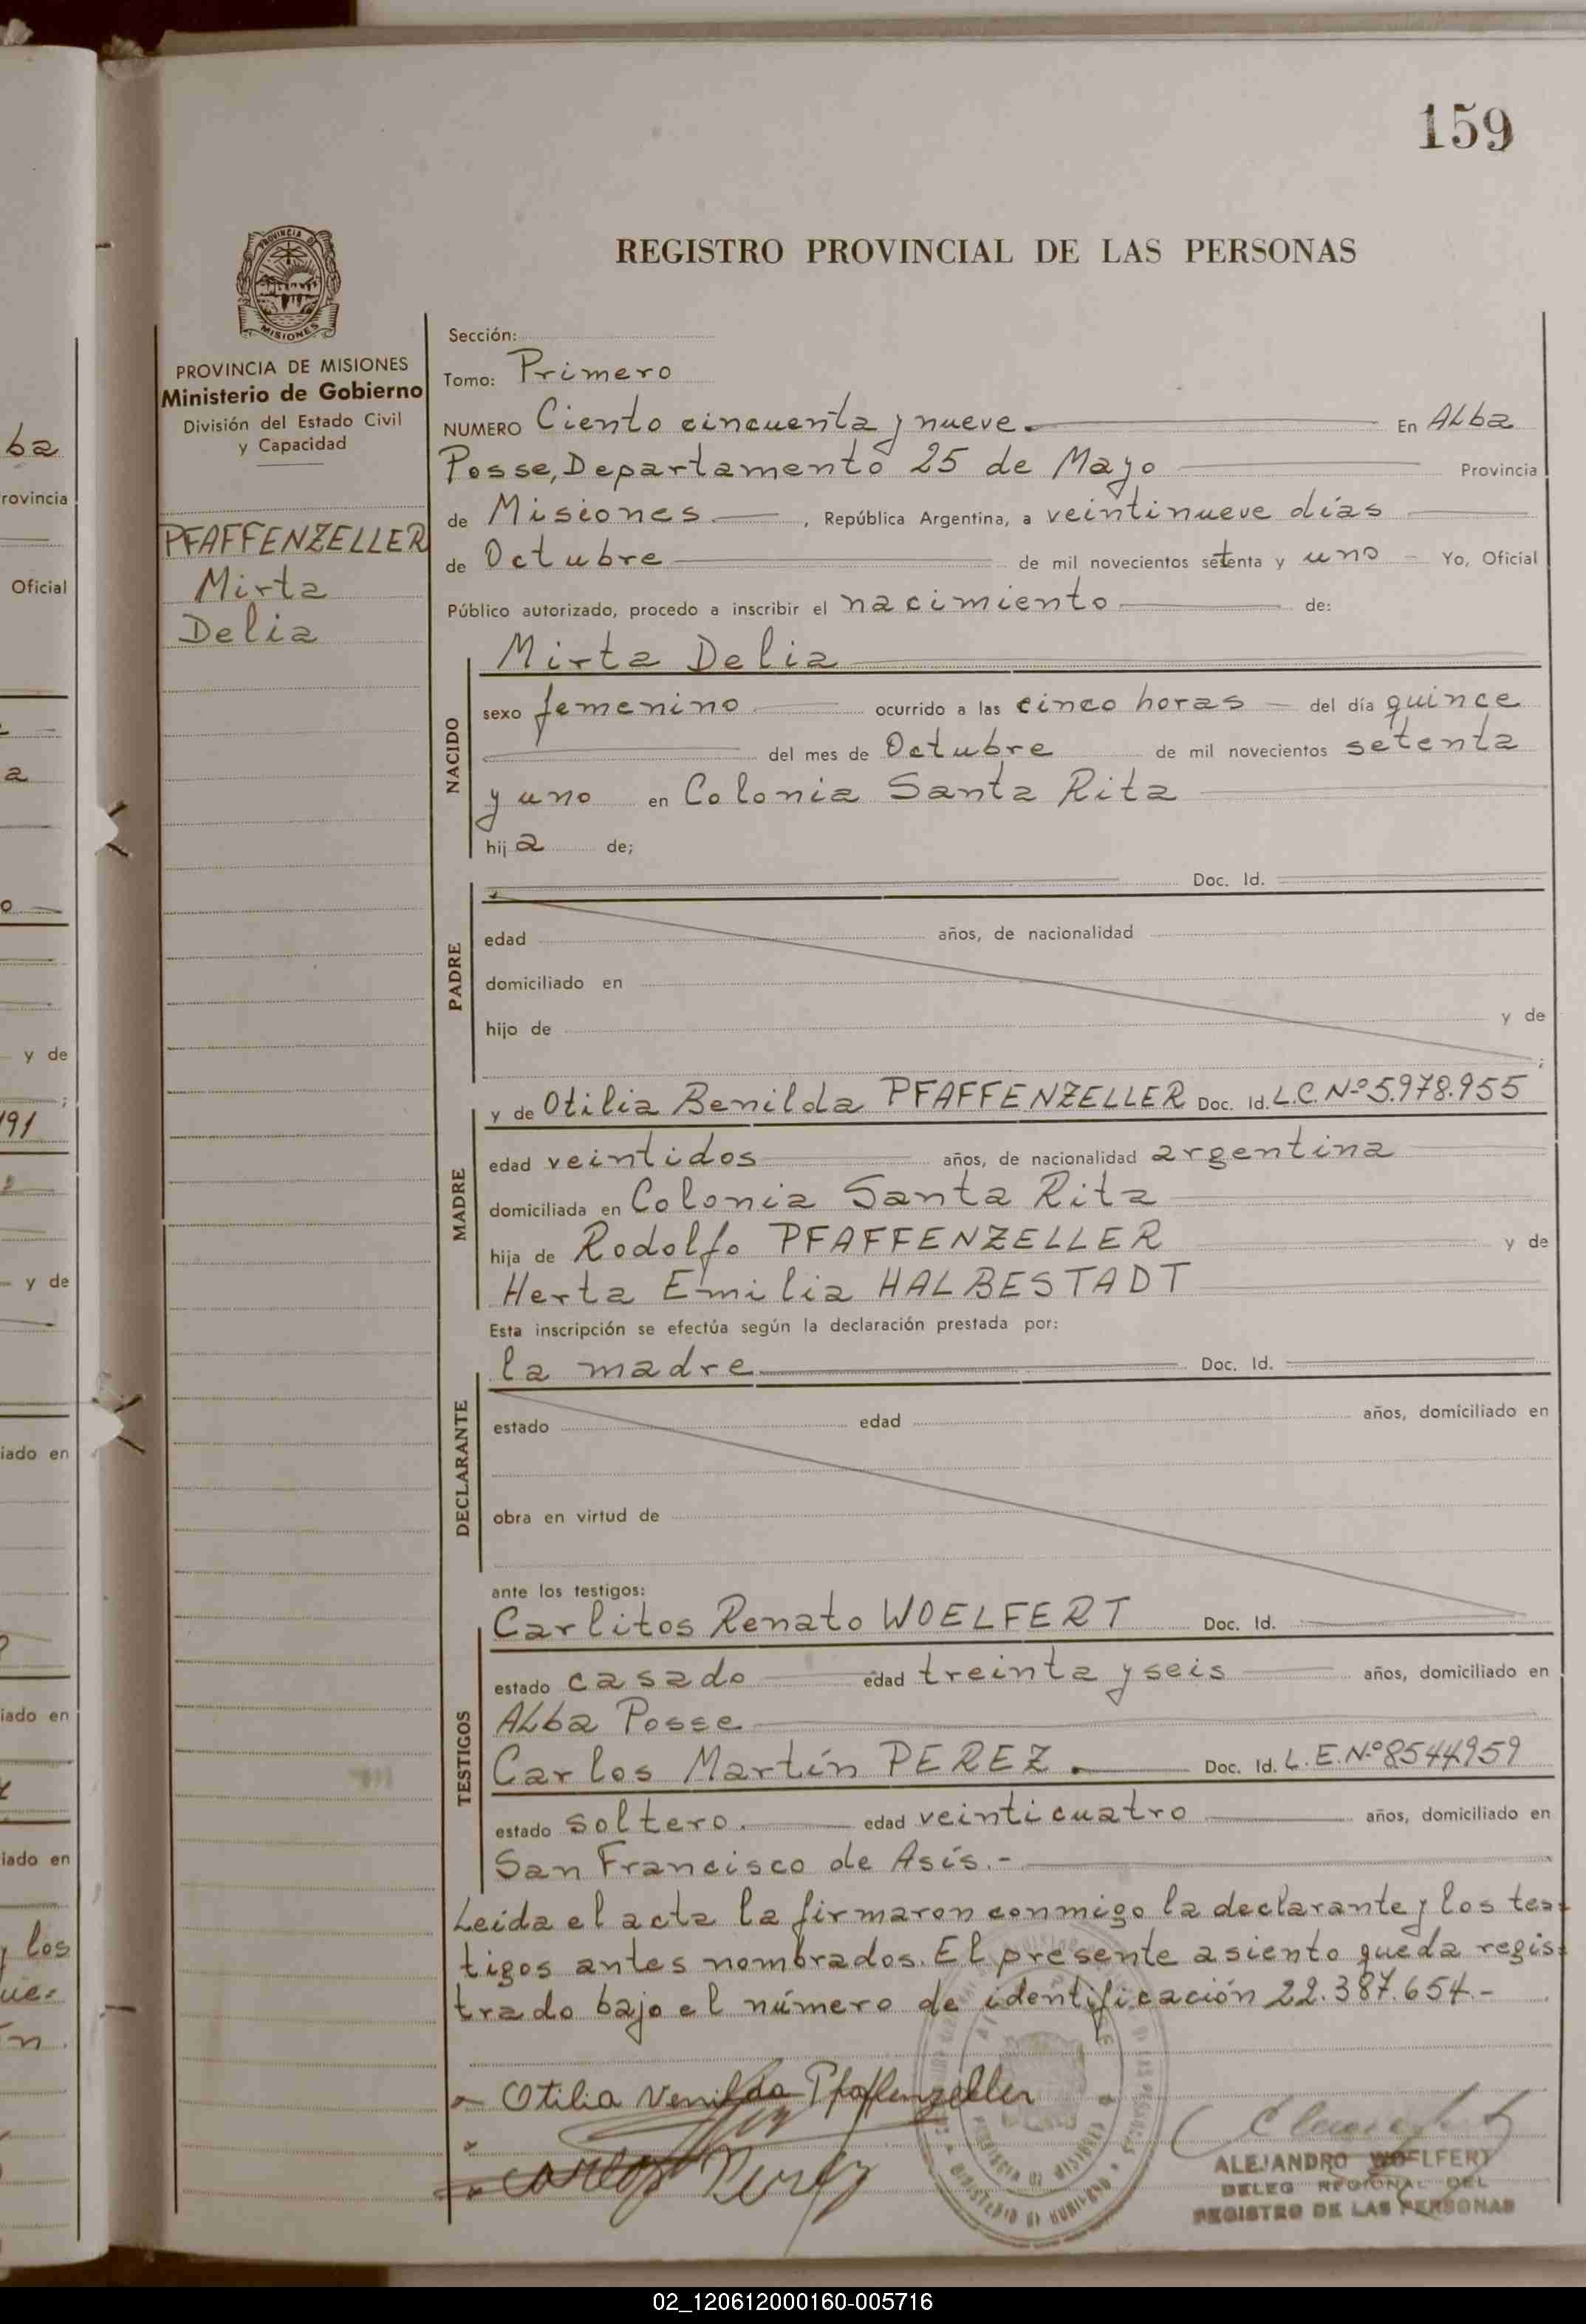 159
REGISTRO PROVINCIAL DE LAS PERSONAS
PROVINCIA DE MISIONES
Ministerio de Gobierno
División del Estado Civil
y Capacidad
PFAFFENZELLER
Mirta
Delia
Sección:
Tomo: Primero
NUMERO Ciento cincuenta y nueve. En Alba
Posse, Departamento 25 de Mayo Provincia
de Misiones , República Argentina, a veintinueve días
de Octubre de mil novecientos setenta y uno - Yo, Oficial
Público autorizado, procedo a inscribir el nacimiento de:
NACIDO
Mirta Delia
sexo femenino ocurrido a las cinco horas - del día quince
del mes de Octubre de mil novecientos setenta
y uno en Colonia Santa Rita
hija de;
PADRE
Doc. Id.
edad años, de nacionalidad
domiciliado en
hijo de y de
;
MADRE
y de Otilia Benilda PFAFFENZELLER Doc. Id. L.C. Nº 5.978.955
edad veintidos años, de nacionalidad argentina
domiciliada en Colonia Santa Rita
hija de Rodolfo PFAFFENZELLER y de
Herta Emilia HALBESTADT
Esta inscripción se efectúa según la declaración prestada por:
DECLARANTE
la madre Doc. Id.
estado edad años, domiciliado en
obra en virtud de
ante los testigos:
TESTIGOS
Carlitos Renato WOELFERT Doc. Id.
estado casado edad treinta y seis años, domiciliado en
Alba Posse
Carlos Martín PEREZ. Doc. Id. L.E. Nº 8544959
estado soltero. edad veinticuatro años, domiciliado en
San Francisco de Asís.-
Leída el acta la firmaron conmigo la declarante y los tes-
tigos antes nombrados. El presente asiento queda regis-
trado bajo el número de identificación 22.387.654.-
Otilia Venilda Pfaffenzeller
Carlos Perez
ALEJANDRO WOELFERT
DELEG REGIONAL DEL
REGISTRO DE LAS PERSONAS
ba
rovincia
Oficial
a
o
y de
191
y de
iado en
iado en
iado en
y los
ue-
n.
02_120612000160-005716